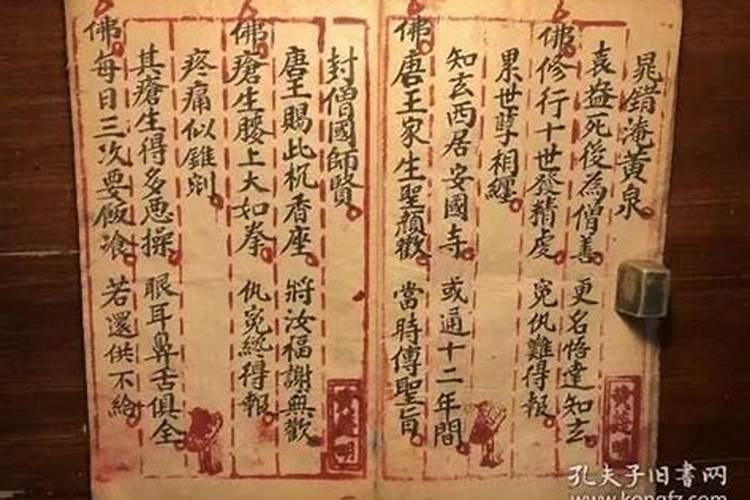 晁錯淹黄泉
袁益死後為僧善 更名悟達知玄
佛修行十世發精虔 冤仇難得報
累世孽相纏
知玄西居安國寺 或通十二年間
佛唐王家生聖顏歡 當時傳聖旨
封僧國師賢
唐王賜此杌香座 將汝福謝無歡
佛瘡生腰上大如拳 仇冤終得報
疼痛似錐剜
其瘡生得多惡操 眼耳鼻舌俱全
佛每日三次要飯飡 若還供不給
孔夫子旧书网